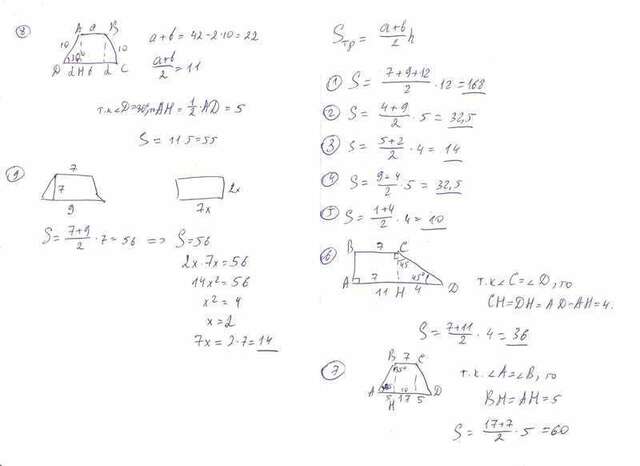 8
A a B
10 10
30°
D d H b d C
a+b = 42-2·10 = 22
a+b/2 = 11
т.к ∠D=30°, то AH = 1/2·AD = 5
S = 11·5=55
9
7
7
9
2x
7x
S = 7+9/2 · 7 = 56 => S=56
2x·7x=56
14x²=56
x²=4
x=2
7x=2·7=14
Sтр = a+b/2 h
1 S = 7+9+12/2 · 12 = 168
2 S = 4+9/2 · 5 = 32,5
3 S = 5+2/2 · 4 = 14
4 S = 9+4/2 · 5 = 32,5
5 S = 1+4/2 · 4 = 10
6
B 7 C
45
A 7 45° D
11 H 4
т.к ∠C=∠D, то
CH=DH=AD-AH=4.
S = 7+11/2 · 4 = 36
7
B 7 C
45°
A 5 10 5 D
H 17
т.к. ∠A=∠B, то
BH=AH=5
S = 17+7/2 · 5 = 60